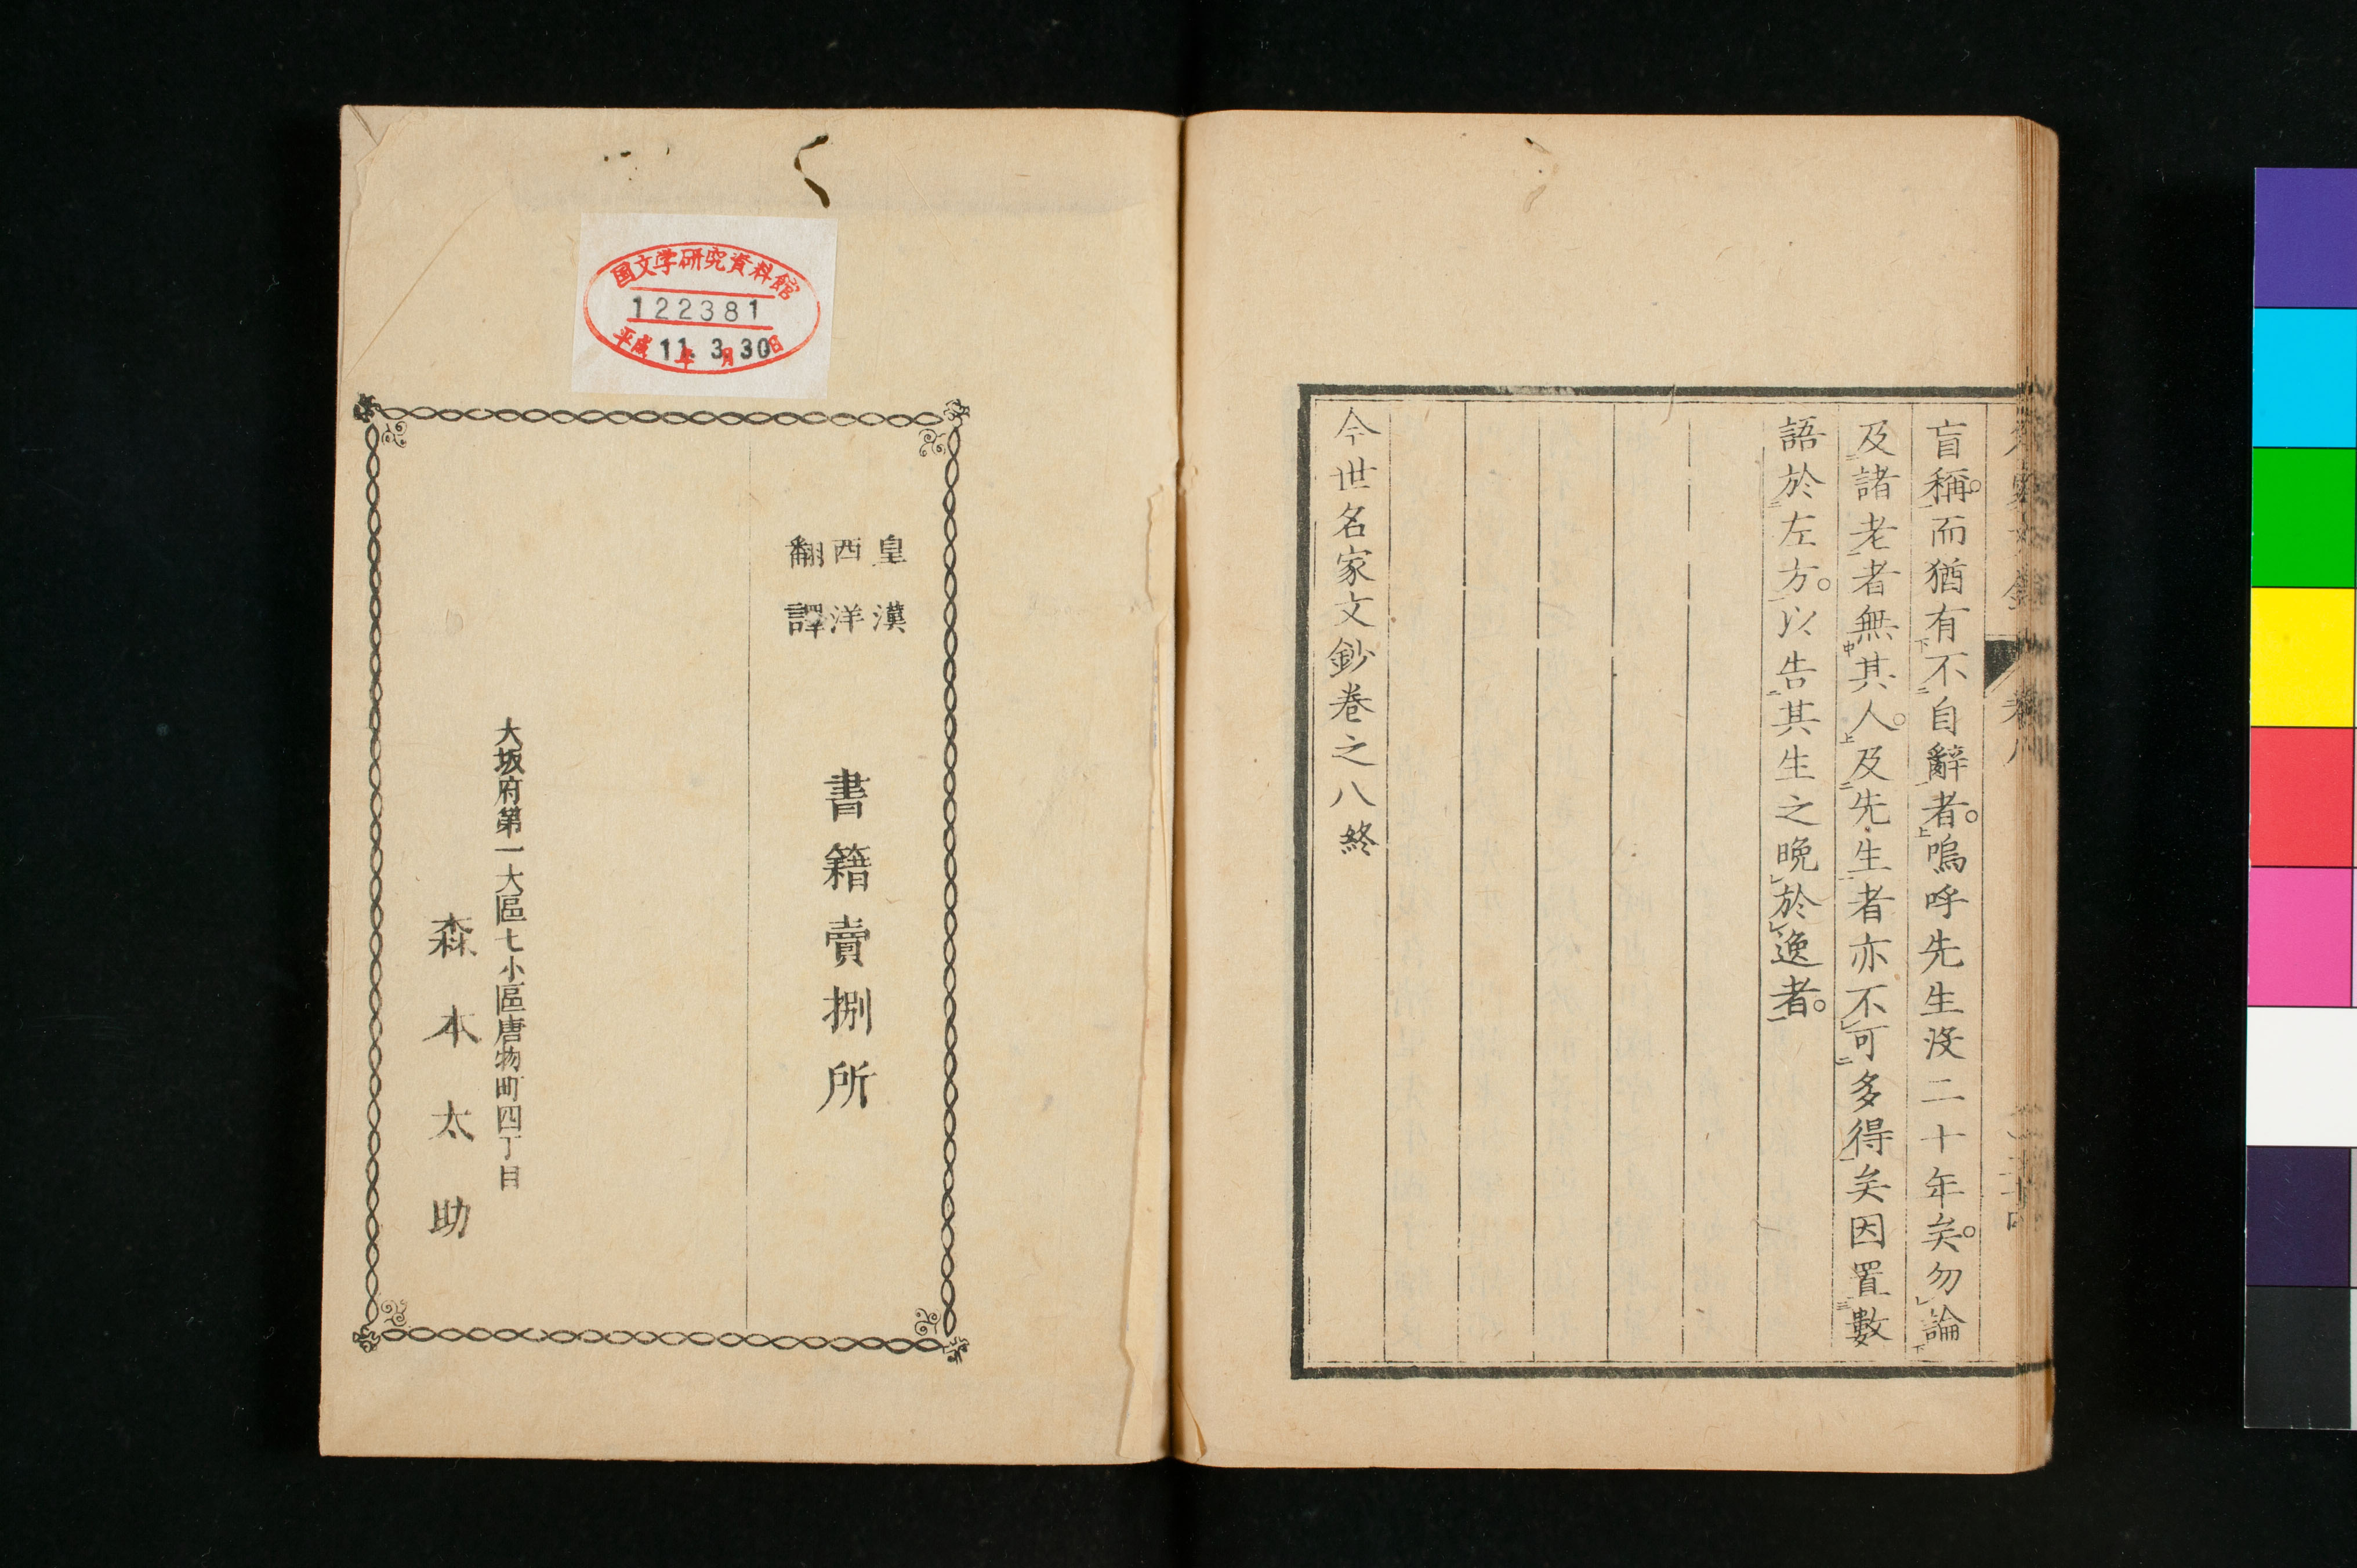 盲稱。而猶有不自辭者。嗚呼先生沒二十年矣。勿論
及諸老者無其人。及先生者亦不可多得矣因置數
語於左方。以告其生之晩於逸者。
今世名家文鈔卷之八終
国文学研究資料館
122381
平成11年3月30日
皇漢
西洋
翻譯
書籍賣捌所
大坂府第一大區七小區唐物町四丁目
森本太助